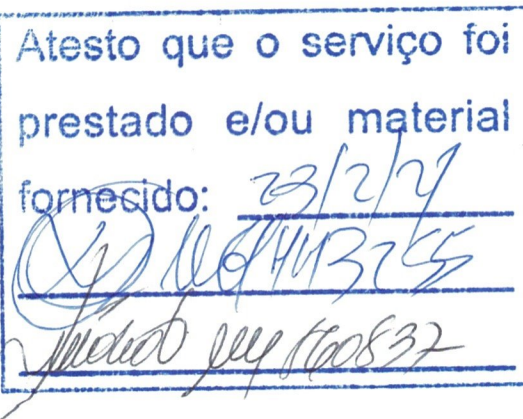 Atesto que o serviço foi
prestado e/ou material
fornecido: 23/2/21
443255
860832